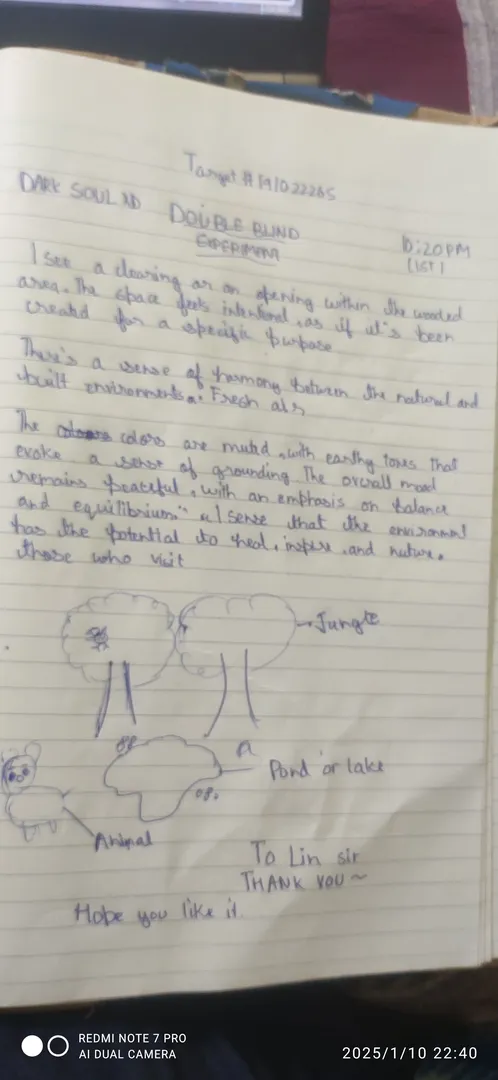 Target # 19102226S
DARK SOUL ND
DOUBLE BLIND
EXPERIMENT
10:20 PM
(IST)
I see a clearing or an opening within the wooded
area. The space feels intentional, as if it's been
created for a specific purpose
There's a sense of harmony between the natural and
built environments. Fresh air
The colors are muted, with earthy tones that
evoke a sense of grounding The overall mood
remains peaceful, with an emphasis on balance
and equilibrium" "I sense that the environment
has the potential to heal, inspire, and nuture,
those who visit
Jungle
Pond or lake
Animal
To Lin sir
THANK YOU ~
Hope you like it.
REDMI NOTE 7 PRO
AI DUAL CAMERA
2025/1/10 22:40